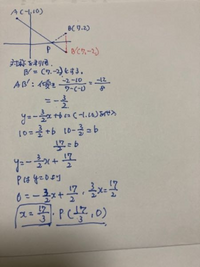 A(-1,10)
B(7,2)
P
B'(7,-2)
B'=(7,-2)とする。
-2-10
7-(-1)
=
-12
8
= -3/2
y=-3/2x+b
10=3/2+b 10-3/2=b
17/2=b
y=-3/2x+17/2
Pはy=0より
0=-3/2x+17/2, 3/2x=17/2
x=17/3, P(17/3,0)